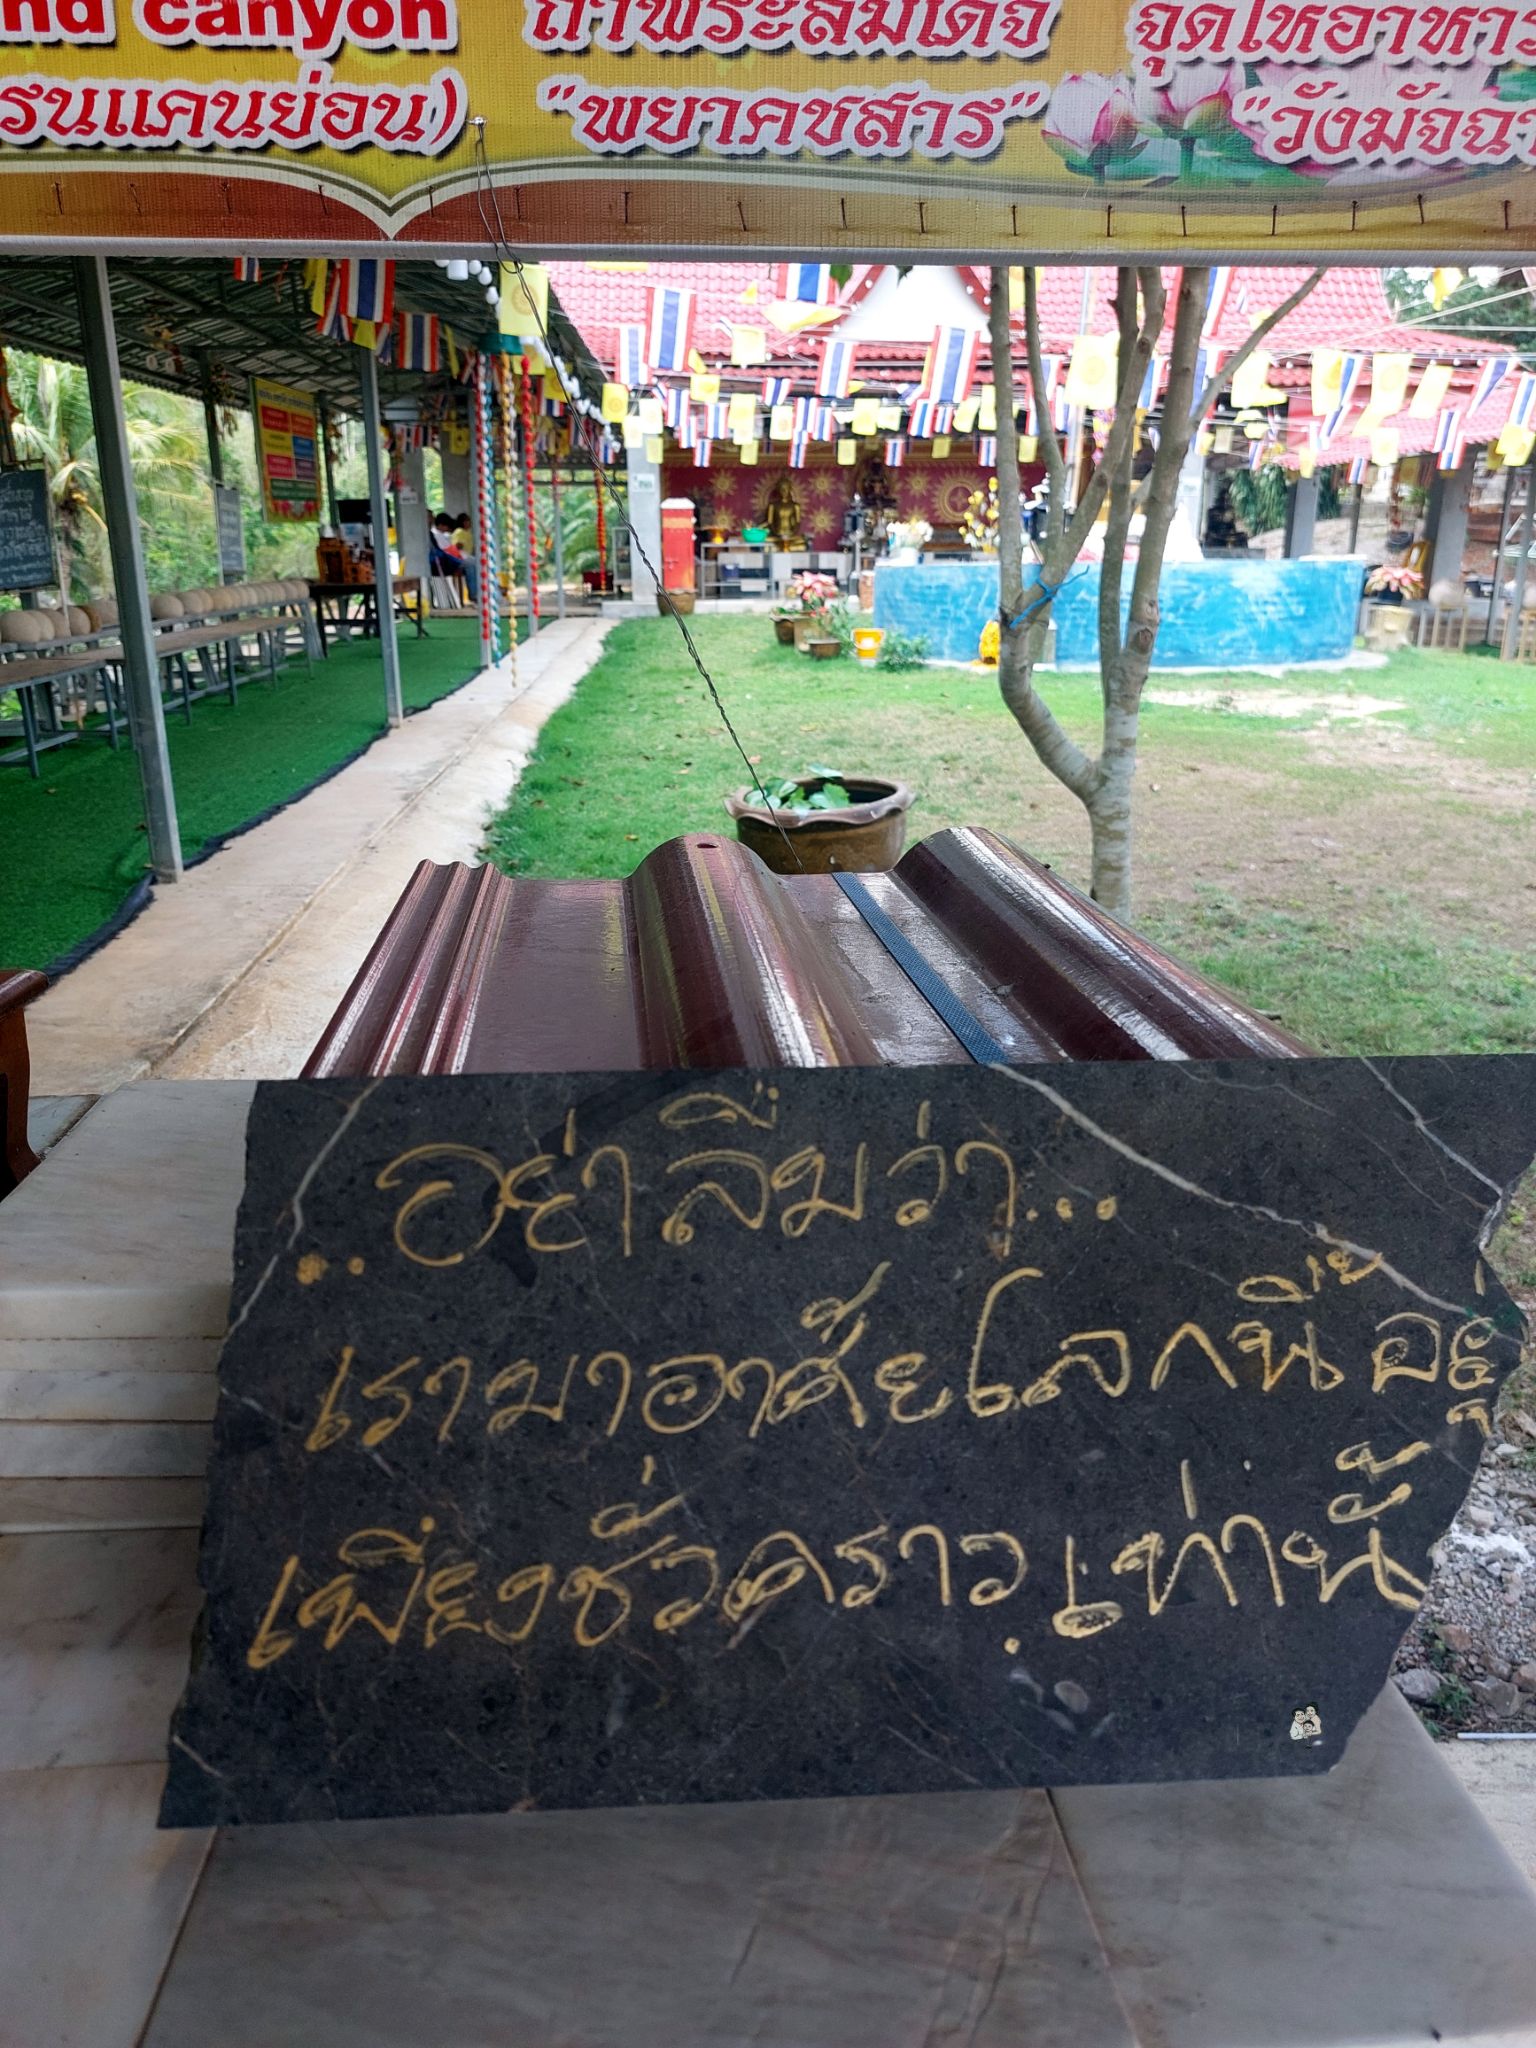 nd canyon
รนแคนย่อน)
ถ้ำพระสมเด็จ
"พยาคชสาร"
จุดให้อาหาร
"วังมัจฉา
...อย่าลืมว่า...
เรามาอาศัยโลกนี้อยู่
เพียงชั่วคราว เท่านั้น